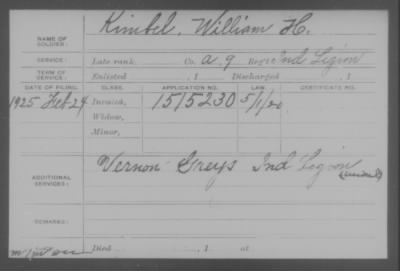 NAME OF SOLDIER: Kimbel, William H.
SERVICE: Late rank, Co. a. g Reg't Ind Legion
TERM OF SERVICE: Enlisted , 1 Discharged , 1
DATE OF FILING. CLASS. APPLICATION NO. LAW. CERTIFICATE NO.
1925 Feb-24 Invalid, 1515230 5/1/20
Widow,
Minor,
ADDITIONAL SERVICES: Vernon Greys Ind Legion
REMARKS:
Died , 1 at